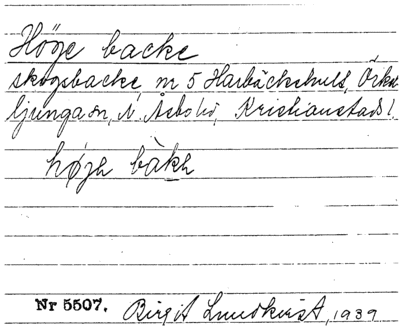 Höge backe
skogsbacke nr 5 Harbäckshult, Örke
ljunga sn, N. Åsbo hd, Kristianstads l.
høje bàke
Nr 5507. Birgit Lundkvist, 1939